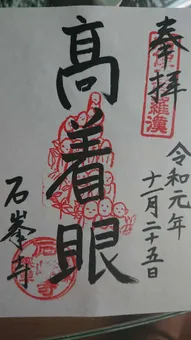 奉拝
令和元年
十一月二十五日
高着眼
石峯寺
羅漢